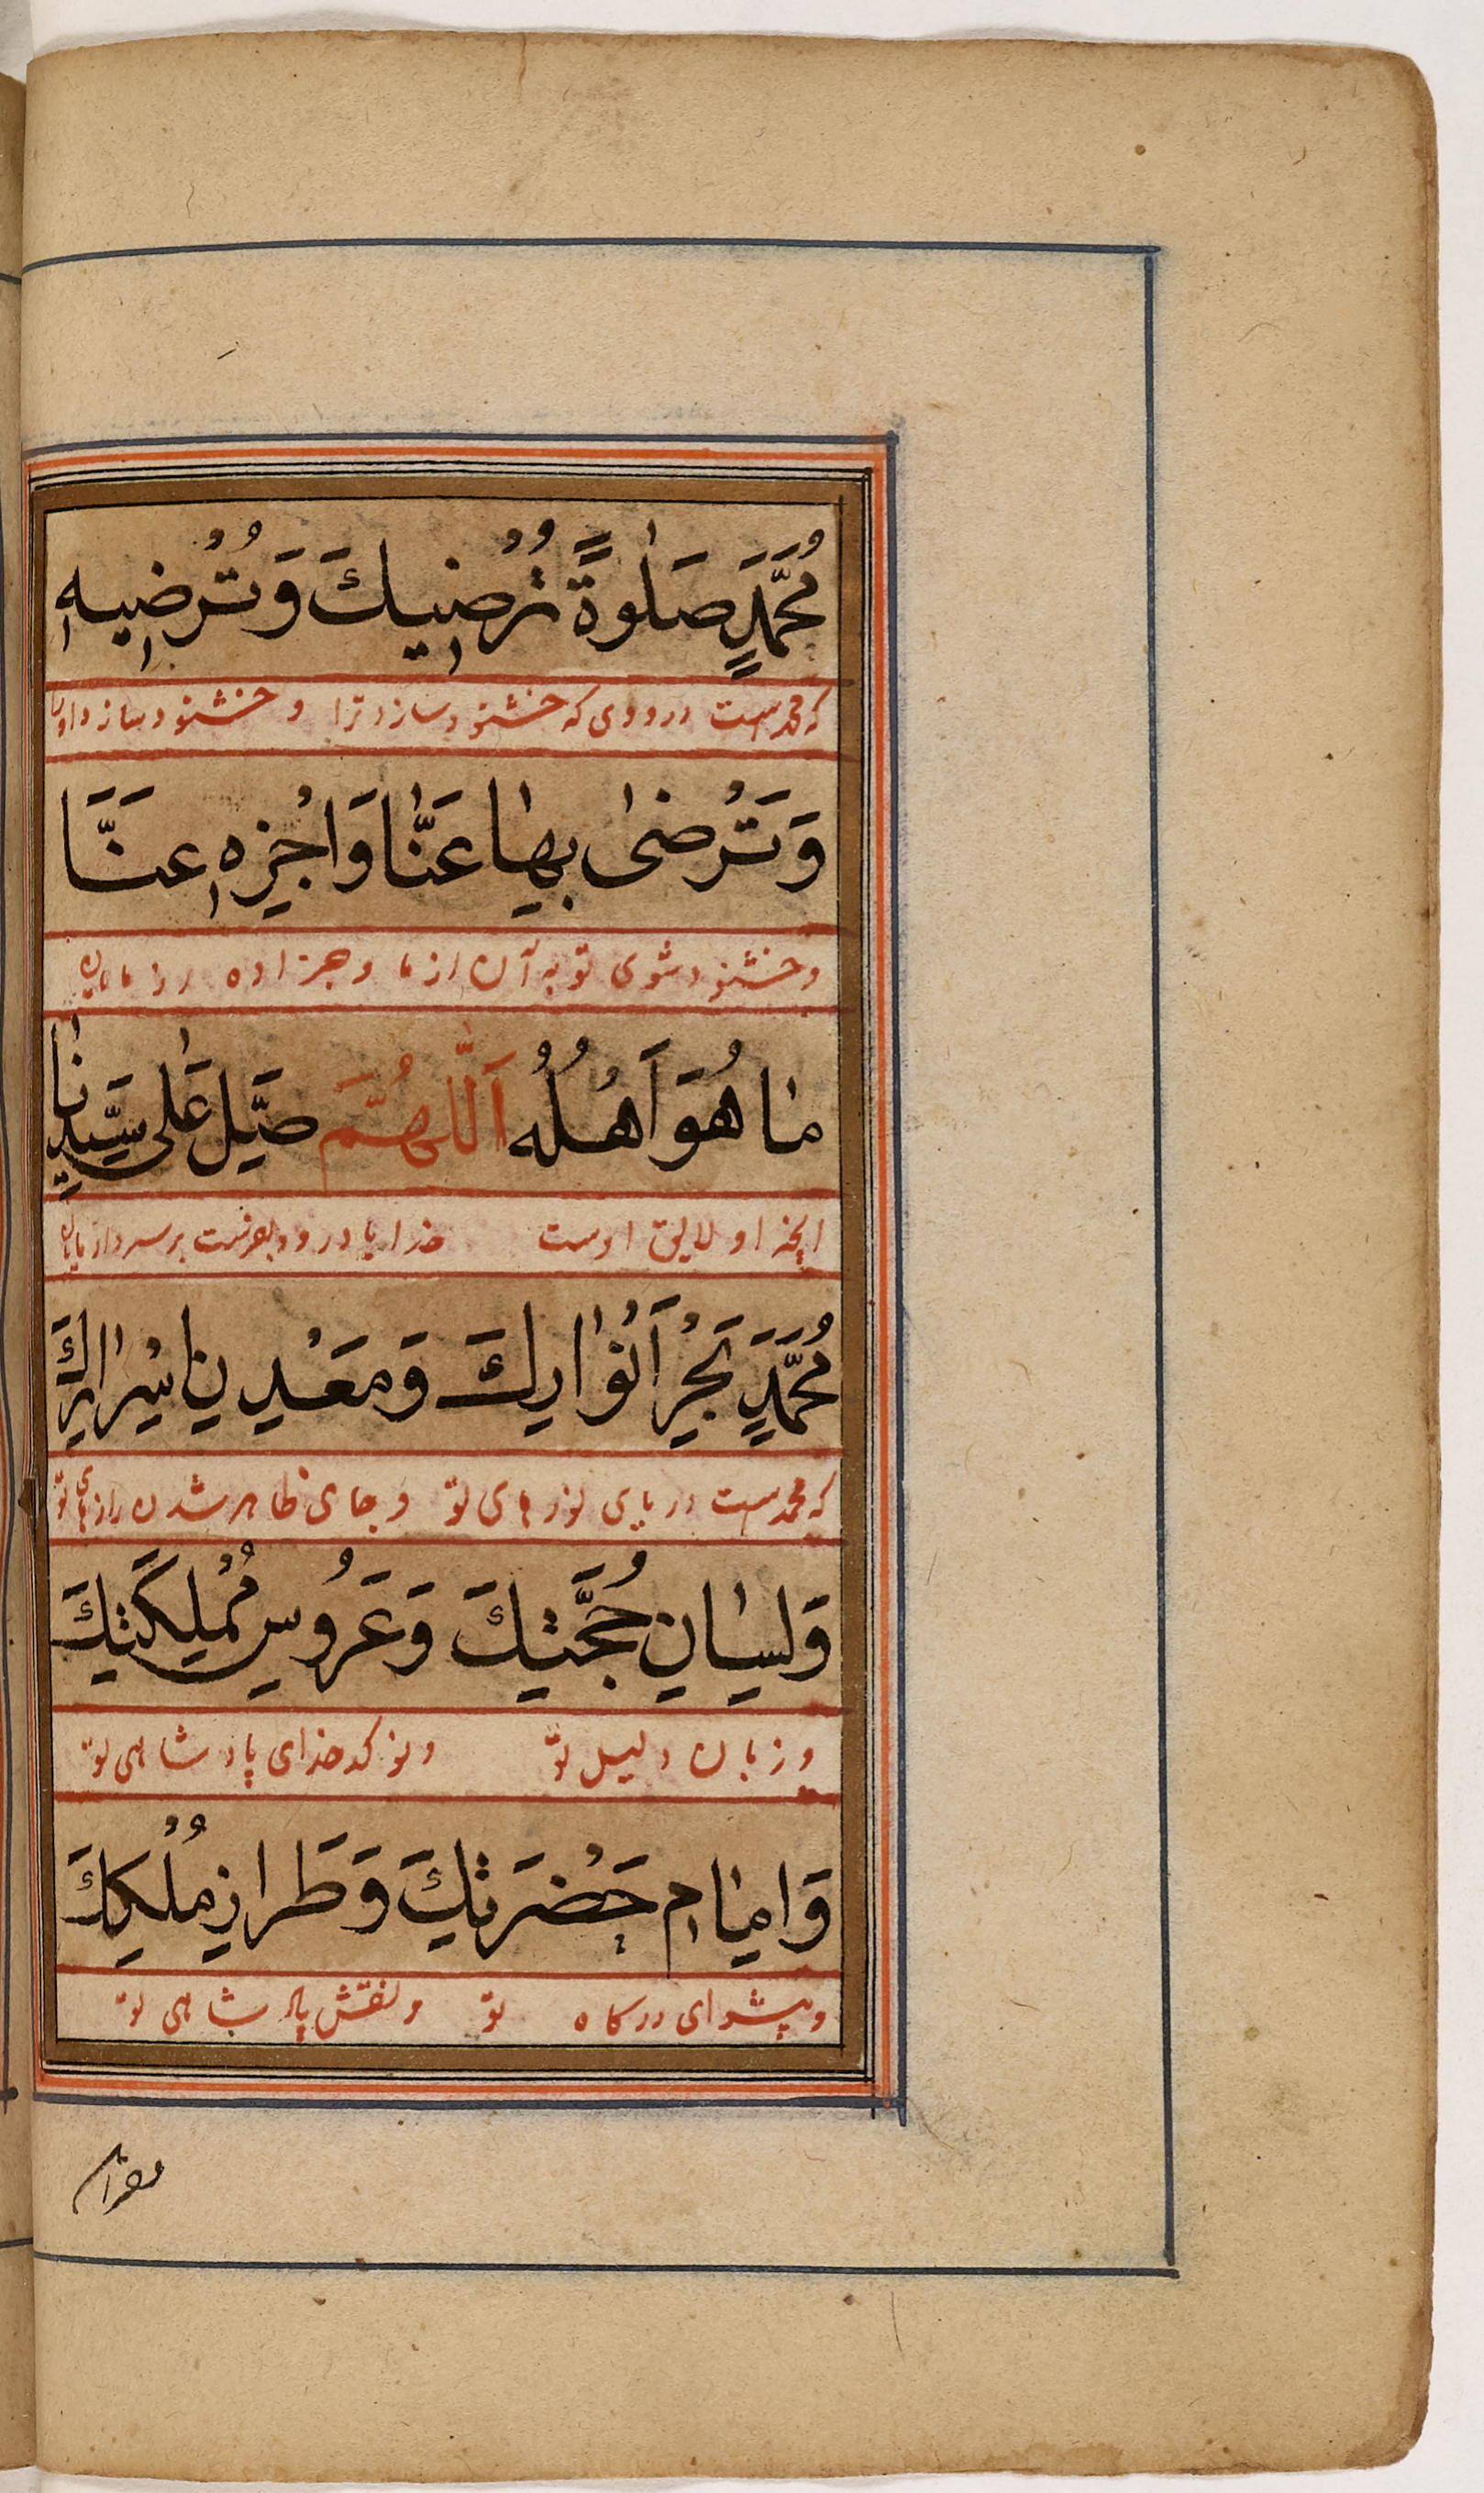 مُحَمَّدٍ صَلٰوةً تُرْضِيكَ وَتُرْضِيهِ
که محمدست درودی که خشنود سازد ترا و خشنود سازد او را
وَتَرْضٰى بِهَا عَنَّا وَاجْزِهِ عَنَّا
و خشنود شوی تو به آن از ما و جزا ده از ما
مَا هُوَ اَهْلُهُ اَللّٰهُمَّ صَلِّ عَلٰى سَيِّدِنَا
انچه او لایق اوست خدایا درود بفرست بر سردار مایان
مُحَمَّدٍ بَحْرِ اَنْوَارِكَ وَمَعْدِنِ اَسْرَارِكَ
که محمدست دریای نورهای تو و جای ظاهر شدن رازهای تو
وَلِسَانِ حُجَّتِكَ وَعَرُوسِ مُمْلِكَتِكَ
و زبان دلیل تو و نو کدخدای پادشاهی تو
وَاِمَامِ حَضْرَتِكَ وَطَرَازِ مُلْكِكَ
و پیشوای درکاه تو و نقش پادشاهی تو